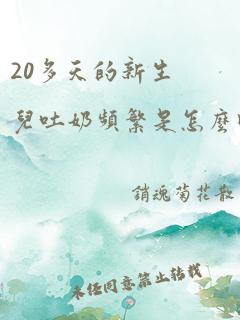 20多天的新生
兒吐奶頻繁是怎麼
銷魂菊花散
未经同意禁止转载